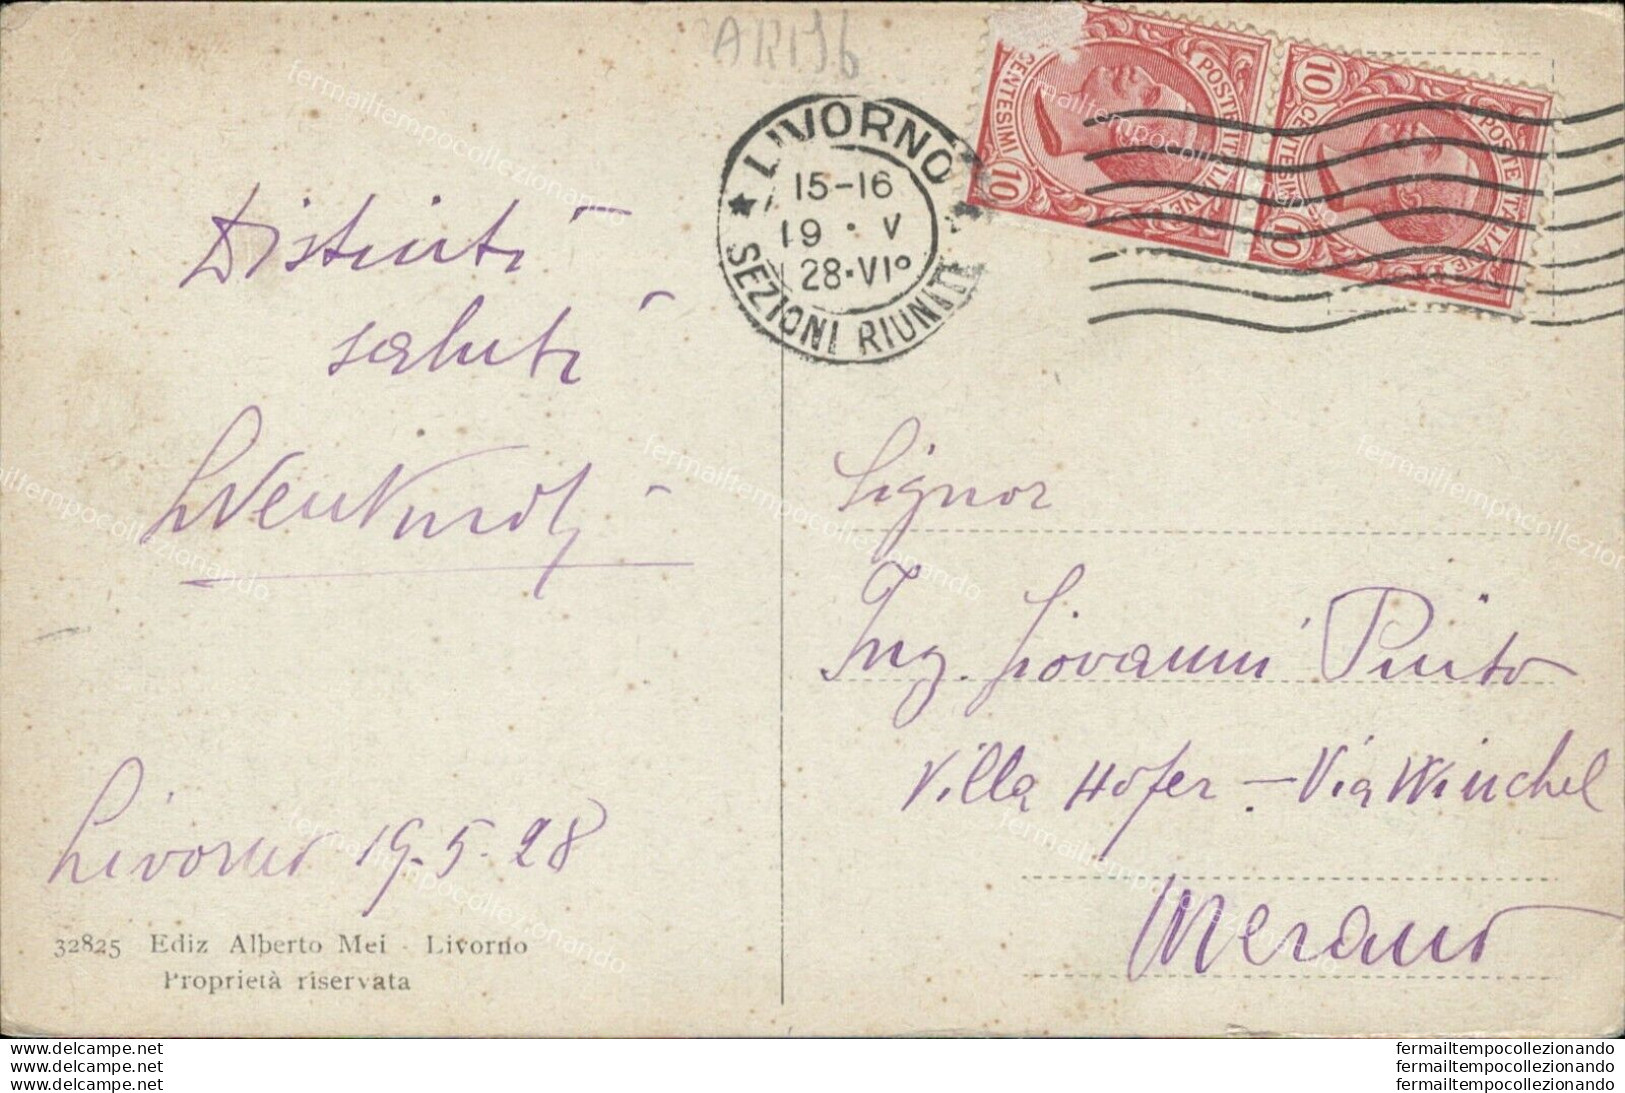 AR196
LIVORNO
15-16
19 · V
28·VI°
SEZIONI RIUNITE
POSTE ITALIANE
CENTESIMI
10
POSTE ITALIANE
10 CENTESIMI 10
Distinti
saluti
Livorno 19-5-28
32825 Ediz Alberto Mei - Livorno
Proprietà riservata
Signor
Ing. Giovanni Pinto
Villa Hofer - Via Winchel
Merano
fermailtempocollezionando
www.delcampe.net
www.delcampe.net
www.delcampe.net
fermailtempocollezionando
fermailtempocollezionando
fermailtempocollezionando